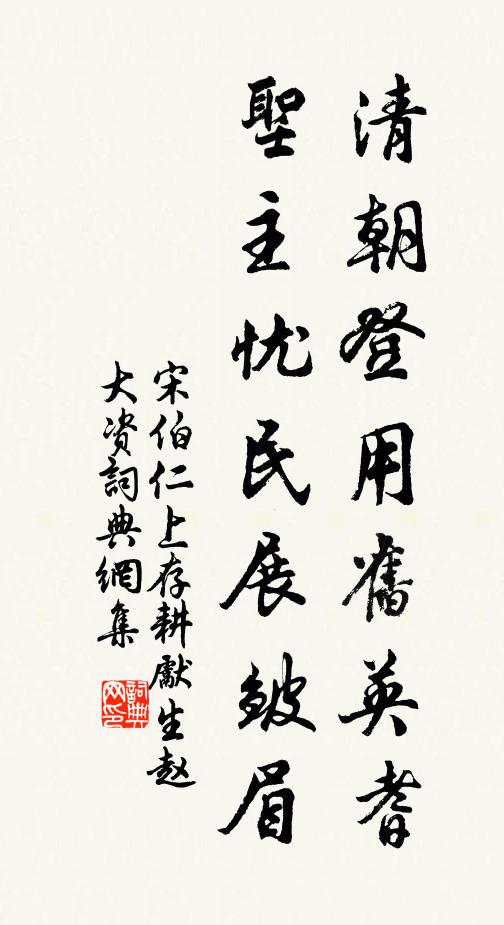 清朝登用舊英耆
聖主忧民展皱眉
宋伯仁上存耕獻生赵
大资詞典網集
詞典网印